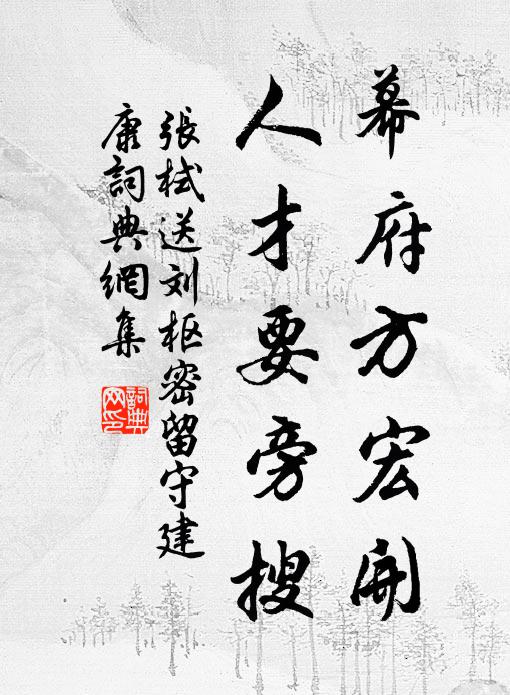 幕府方宏開
人才要旁搜
張栻送刘枢密留守建
康詞典網集
詞典
网印